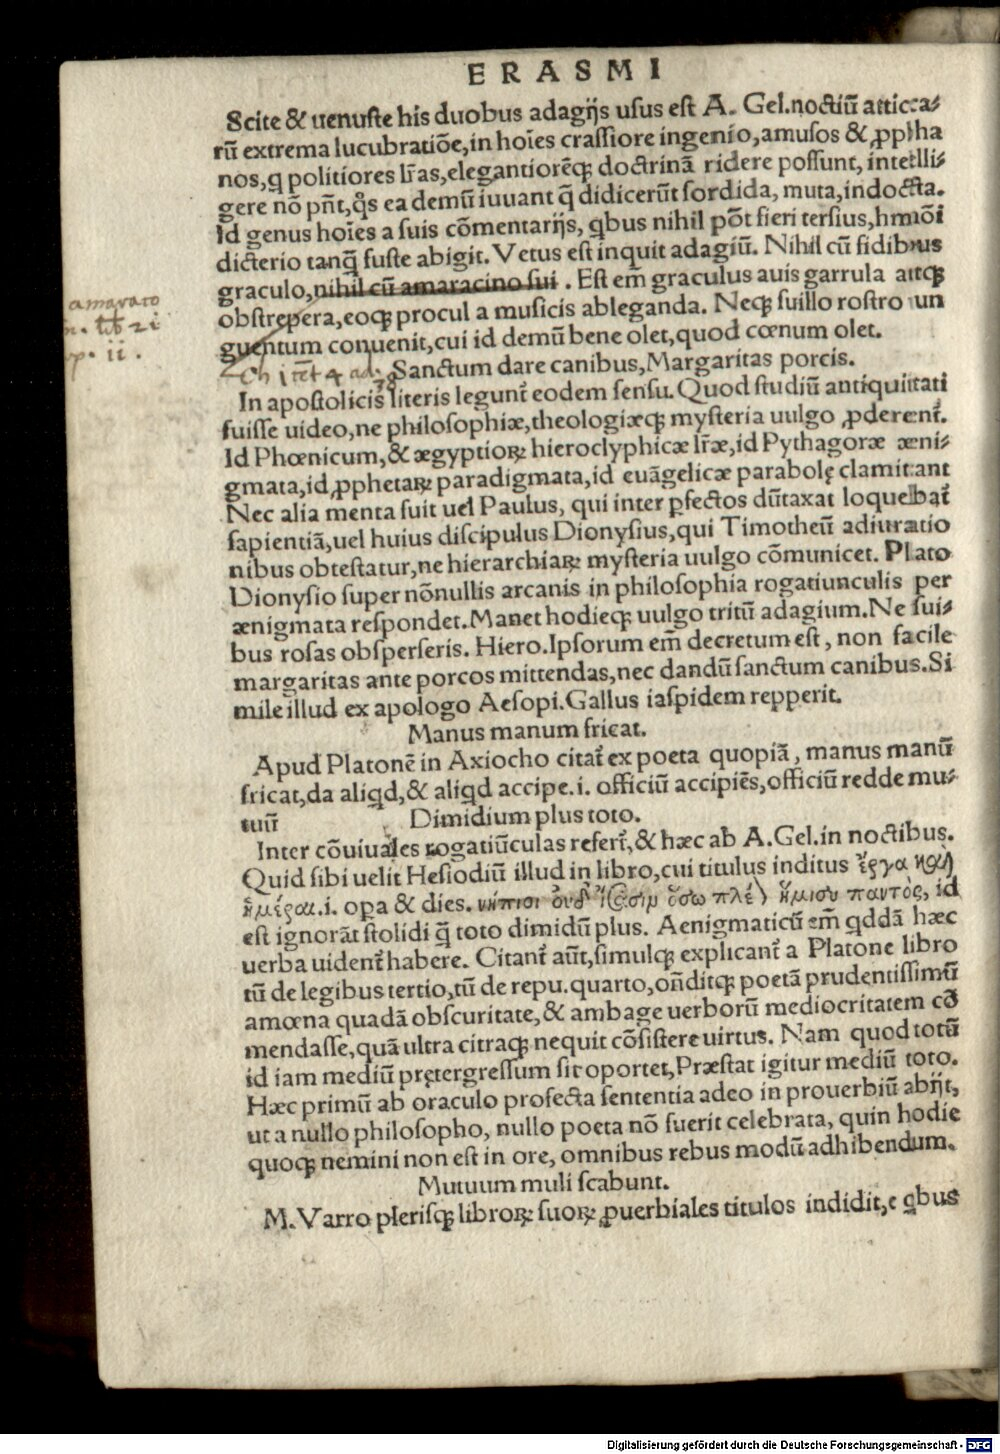 ERASMI
Scite & uenuste his duobus adagijs usus est A. Gel.noctiū attica⸗
rū extrema lucubratiōe,in hoīes crassiore ingenio,amusos & ꝓpha
nos,q politiores lr̄as,elegantiorēqꝫ doctrinā ridere possunt, intelli⸗
gere nō pn̄t,q̊s ea demū iuuant q̄ didicerūt sordida, muta,indocta.
Id genus hoīes a suis cōmentarijs, qbus nihil pōt fieri tersius,hmōi
dicterio tanq̄ fuste abigit. Vetus est inquit adagiū. Nihil cū fidibus
graculo,nihil cū amaracino sui . Est em̄ graculus auis garrula atqꝫ
amaraco
lib 21
obstrepera,eoqꝫ procul a musicis ableganda. Neqꝫ suillo rostro un
ii .
guentum conuenit,cui id demū bene olet,quod cœnum olet.
Sanctum dare canibus,Margaritas porcis.
In apostolicis literis legunt̄ eodem sensu. Quod studiū antiquitati
fuisse uideo,ne philosophiæ,theologiæqꝫ mysteria uulgo ꝓderent̄.
Id Phœnicum,& ægyptioꝝ hieroclyphicæ lr̄æ,id Pythagoræ æni⸗
gmata,id ꝓphetaꝝ paradigmata,id euāgelicæ parabolę clamitant
Nec alia menta fuit uel Paulus, qui inter ꝑfectos dūtaxat loquebat̄
sapientiā,uel huius discipulus Dionysius,qui Timotheū adiuratio
nibus obtestatur,ne hierarchiaꝝ mysteria uulgo cōmunicet. Plato
Dionysio super nōnullis arcanis in philosophia rogatiunculis per
ænigmata respondet.Manet hodieqꝫ uulgo tritū adagium.Ne sui⸗
bus rosas obsperseris. Hiero.Ipsorum em̄ decretum est, non facile
margaritas ante porcos mittendas,nec dandū sanctum canibus.Si
mile illud ex apologo Aesopi.Gallus iaspidem repperit.
Manus manum fricat.
Apud Platonē in Axiocho citat̄ ex poeta quopiā, manus manū
fricat,da aliqd,& aliqd accipe.i. officiū accipiēs,officiū redde mu⸗
tuū Dimidium plus toto.
Inter cōuiuales rogatiūculas refert̄,& hæc ab A.Gel.in noctibus.
Quid sibi uelit Hesiodiū illud in libro,cui titulus inditus ἔργα καὶ
ἡμέραι.i. opa & dies. νήπιοι ὀυδ' ἴσασιμ ὅσω πλέ) ἥμισυ παντὸς, id
est ignorāt stolidi q̄ toto dimidū plus. Aenigmaticū em̄ qddā hæc
uerba uident̄ habere. Citant̄ aūt,simulqꝫ explicant̄ a Platone libro
tū de legibus tertio,tū de repu.quarto,on̄ditqꝫ poetā prudentissimū
amœna quadā obscuritate,& ambage uerborū mediocritatem cō
mendasse,quā ultra citraqꝫ nequit cōsistere uirtus. Nam quod totū
id iam mediū prętergressum sit oportet,Præstat igitur mediū toto.
Hæc primū ab oraculo profecta sententia adeo in prouerbiū abijt,
ut a nullo philosopho, nullo poeta nō fuerit celebrata, quin hodie
quoqꝫ nemini non est in ore, omnibus rebus modū adhibendum.
Mutuum muli scabunt.
M.Varro plerisqꝫ libroꝝ suoꝝ ꝓuerbiales titulos indidit,e qbus
Digitalisierung gefördert durch die Deutsche Forschungsgemeinschaft - DFG